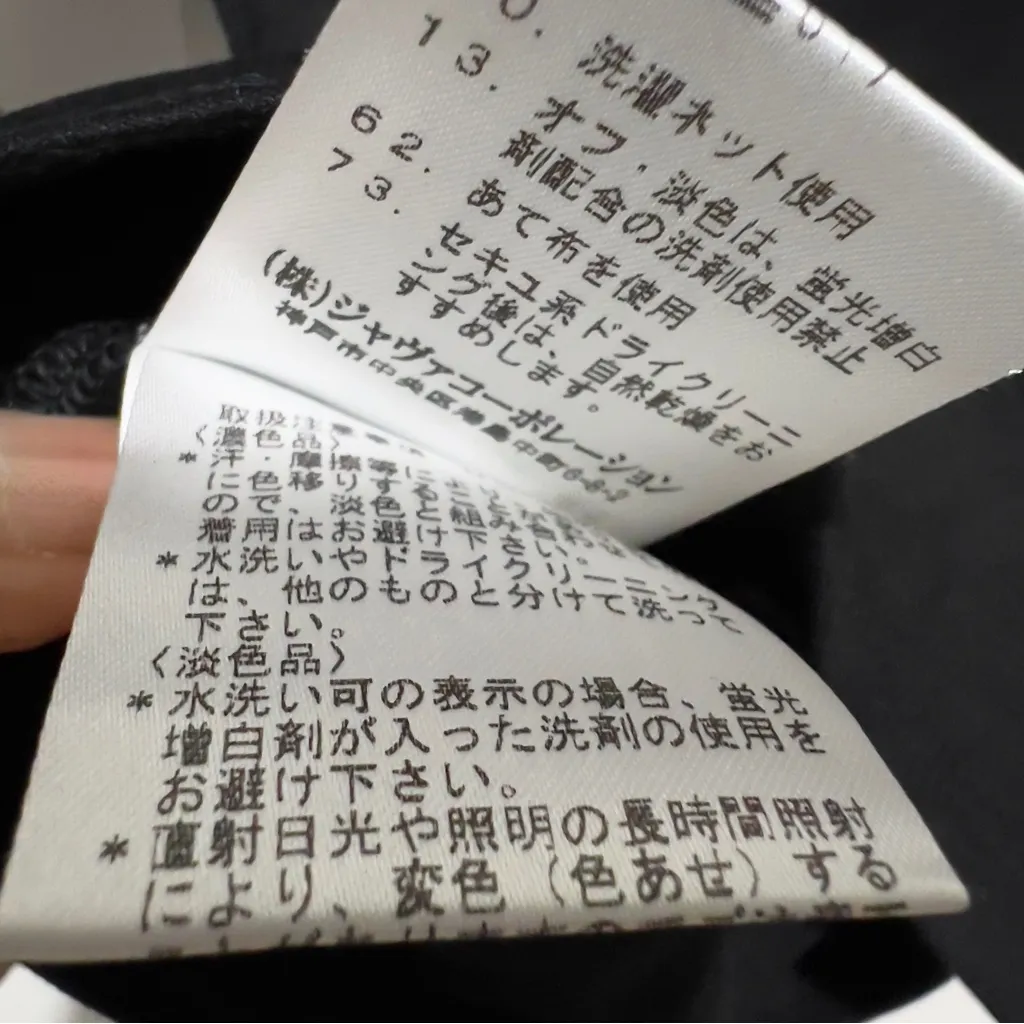 0. 洗濯ネット使用
13. オフ・淡色は、蛍光増白
剤配合の洗剤使用禁止
62. あて布を使用
73. セキユ系ドライクリーニ
ング後は、自然乾燥をお
すすめします。
(株)ジャヴァコーポレーション
神戸市中央区港島中町6-8-2
取扱注
〈濃色品〉
*汗・摩擦等に
に色移りする
ので、淡色と
着用はお避け下さい。
*水洗いやドライクリーニング
は、他のものと分けて洗って
下さい。
〈淡色品〉
*水洗い可の表示の場合、蛍光
増白剤が入った洗剤の使用を
お避け下さい。
*直射日光や照明の長時間照射
により、変色(色あせ)する